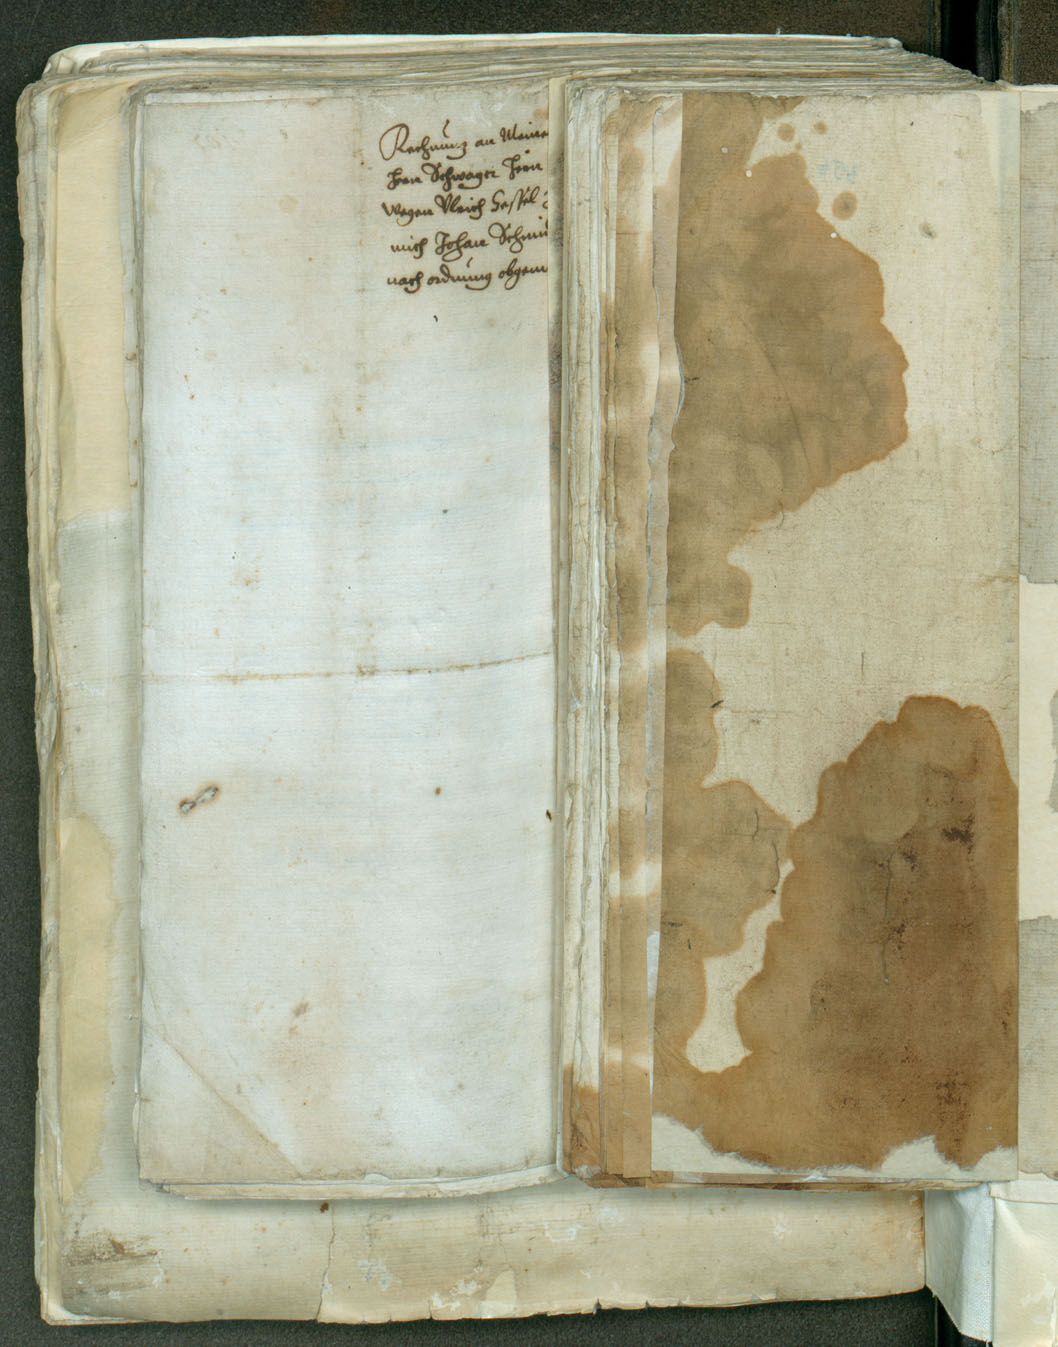 Rechnung an Meine
Herr Schwager Herr
wegen Ulrich Hessel
mich Johan Schmi
nach ordnung obgem